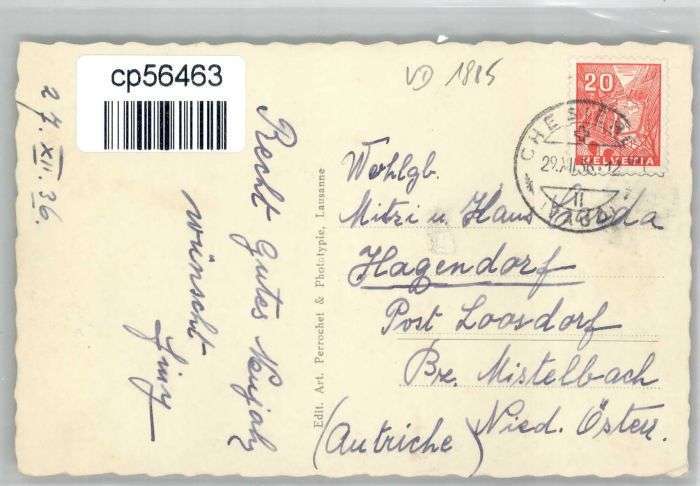 cp56463
VD 1885
27. XII. 36.
Recht gutes Neujahr
wünscht
Edit. Art. Perrochet & Phototypie, Lausanne
20
HELVETIA
Wohlgb.
Mitzi u. Hans
Hagendorf
Post Loosdorf
Bz. Mistelbach
(Autriche) Nied. Österr.